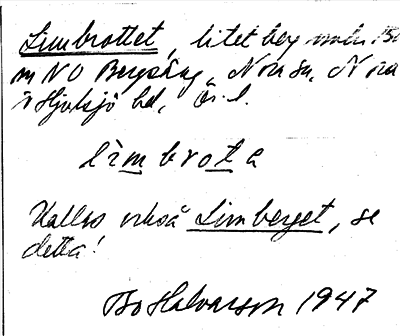 Limbrottet, litet berg 150
m NO Bergsäng, Nora sn, Nora
o Hjulsjö bd, Ör. l.
lìmbrota
Kallas också Limberget, se
detta!
Bo Halvarson 1947